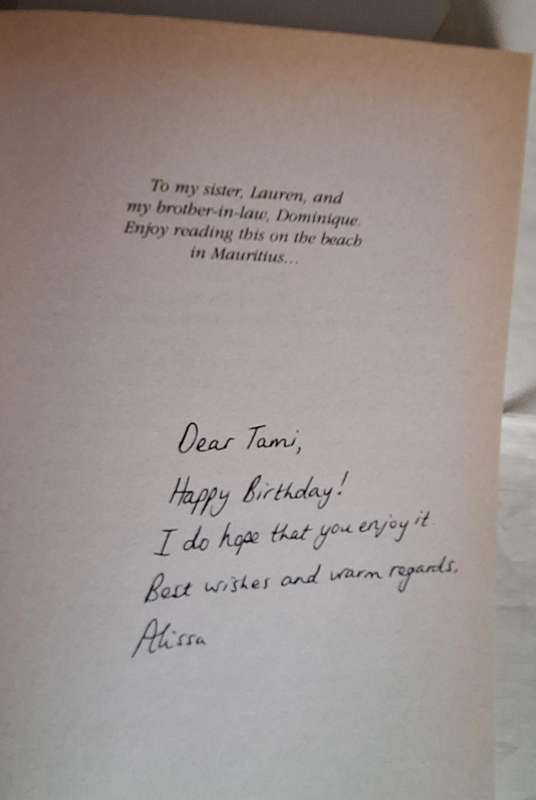 To my sister, Lauren, and
my brother-in-law, Dominique.
Enjoy reading this on the beach
in Mauritius...
Dear Tami,
Happy Birthday!
I do hope that you enjoy it.
Best wishes and warm regards,
Alissa